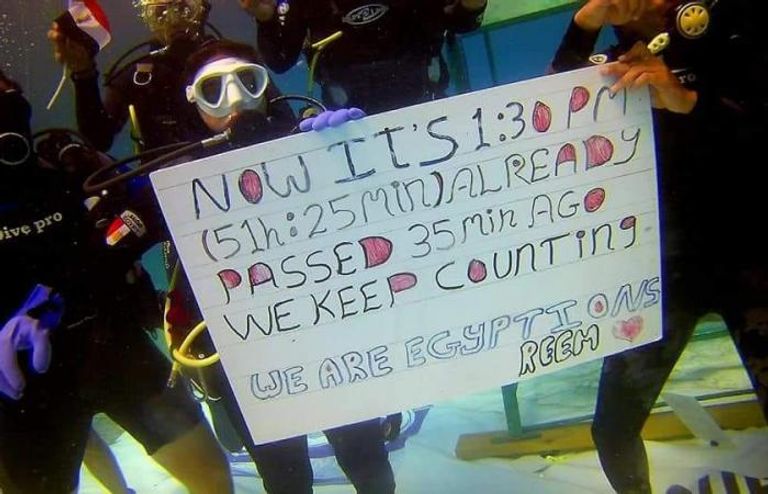 NOW IT'S 1:30 PM
(51h:25Min) ALREADY
PASSED 35Min AGO
WE KEEP COUNTING
WE ARE EGYPTIONS
REEM
ive pro
ro